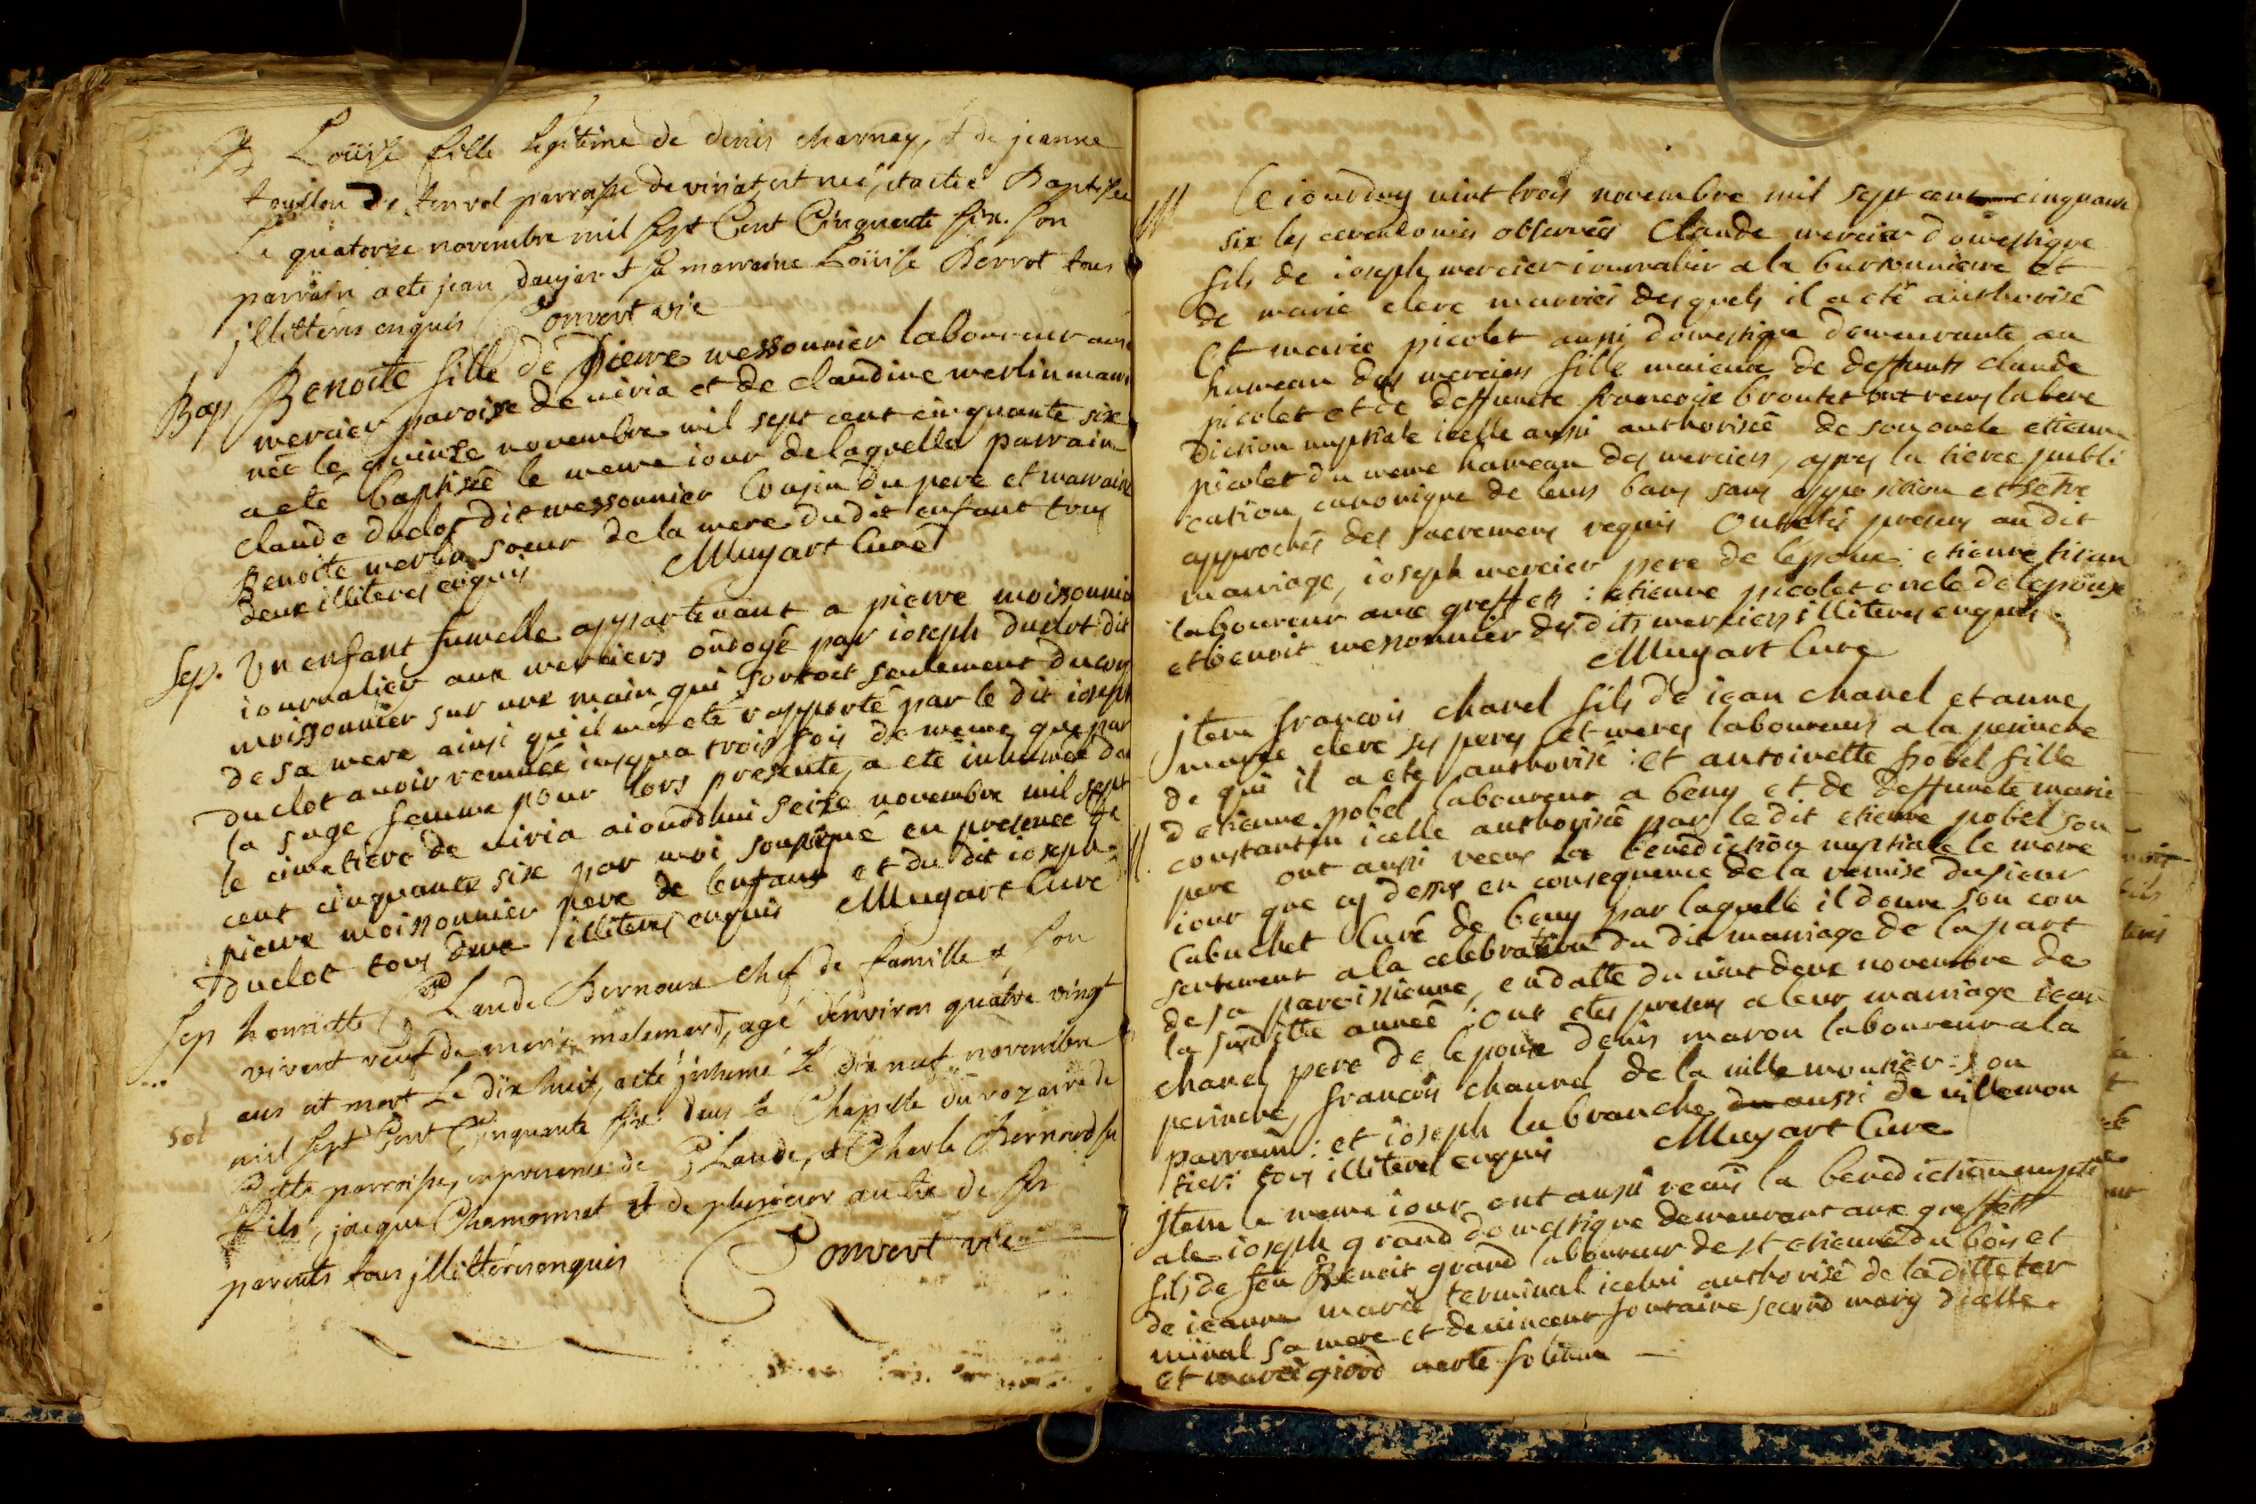 B Loüise fille legitime de denis charnay, et de jeanne
touillon de tenvol parroisse de viriat, est née, et a été Baptisée
le quatorze novembre mil sept Cent Cinquante six. son
parrain a été jean daujat et sa marraine Loüise Berrot tous
jllitterés enquis Convert vic
Bap Benoite fille de pierre messonnier laboureur aux
mercier paroisse de viria et de claudine merlin mariés
née le quinze novembre mil sept cent cinquante six
a eté baptisée le meme iour de laquelle parrain
claude duclot dit messonnier cousin du pere et marraine
Benoite merlin soeur de la mere du dit enfant tous
deux illiteres enquis Muyart Curé
Sep. Un enfant fumelle appartenant a pierre moissonnier
iournalier aux merciers ondoyé par ioseph duclot dit
moissonnier sur une main qui sortoit seulement du corps
de sa mere ainsi qu'il m'a eté rapporté par le dit ioseph
duclot avoir remuée iusqua trois fois de meme que par
la sage femme pour lors presente, a eté inhumée dans
le cimetiere de viria aiourdhui seize novembre mil sept
cent cinquante six par moi soussigné en presence de
pierre moissonnier pere de lenfant et du dit ioseph
duclot tous deux illiteres enquis Muyart Curé
Sep honnette Claude Bernoux chef de famille et son
vivant veuf de marie malemard, agé denviron quatre vingt
ans est mort le dix huit, a été jnhumé le dix neuf novembre
sol mil sept Cent Cinquante six dans la Chapelle du rozaire de
Cette parroisse, en presence de Claude, et Charle Bernoud ses
fils, jacque Chamonnet et de plusieur autre de ses
parents tous jllitterés enquis Convert vic
M Ce iourduy vint trois novembre mil sept cent cinquante
six les ceremonies observées Claude mercier domestique
fils de ioseph mercier iournalier a la bursonniere et
de marie clerc mariés desquels il a eté authorisé
Et marie picolet aussi domestique demeurante au
hameau des merciers fille maieure de deffunts claude
picolet et de deffuncte francoise broutet ont recus la bene
diction nuptiale icelle aussi authorisée de son oncle etienne
picolet du meme hameau des merciers, apres la tierce publi
cation canonique de leurs bans sans opposition et setre
approchés des sacremens requis Ont etés presens au dit
mariage, ioseph mercier pere de lepoux: etienne tiran
laboureur aux greffets: etienne picolet oncle de lepouse
et benoit messonnier des dits merciers illiteres enquis.
Muyart Curé
jtem francois chanel fils de iean chanel et anne
marie clerc ses peres et meres laboureurs a la perinche
de qui il a eté authorisé: Et antoinette pobel fille
M. detienne pobel laboureur a beny et de deffuncte marie
constantin icelle authorisée par le dit etienne pobel son
pere ont aussi recus la benediction nuptiale le meme
iour que cy dessus en consequence de la remise du sieur
Cabuchet Curé de beny par laquelle il donne son con
sentement a la celebration du dit mariage de la part
de sa paroissienne, en datte du vint deux novembre de
la susditte année. Ont etes presens a leur mariage iean
chanel pere de lepoux denis maron laboureur a la
perinche, francois chanel de la ville monsier son
parrain: et ioseph la branche aussi de villemon
tier: tous illiteres enquis Muyart Cure
jtem le meme iour ont aussi recus la benediction nupti
ale ioseph grand domestique demeurant aux greffets
fils de feu Benoit grand laboureur de st etienne du bois et
de ieanne marie terminal icelui authorisé de laditte ter
minal sa mere et de vincent fontaine second mary dicelle.
et marie girod verte soliture